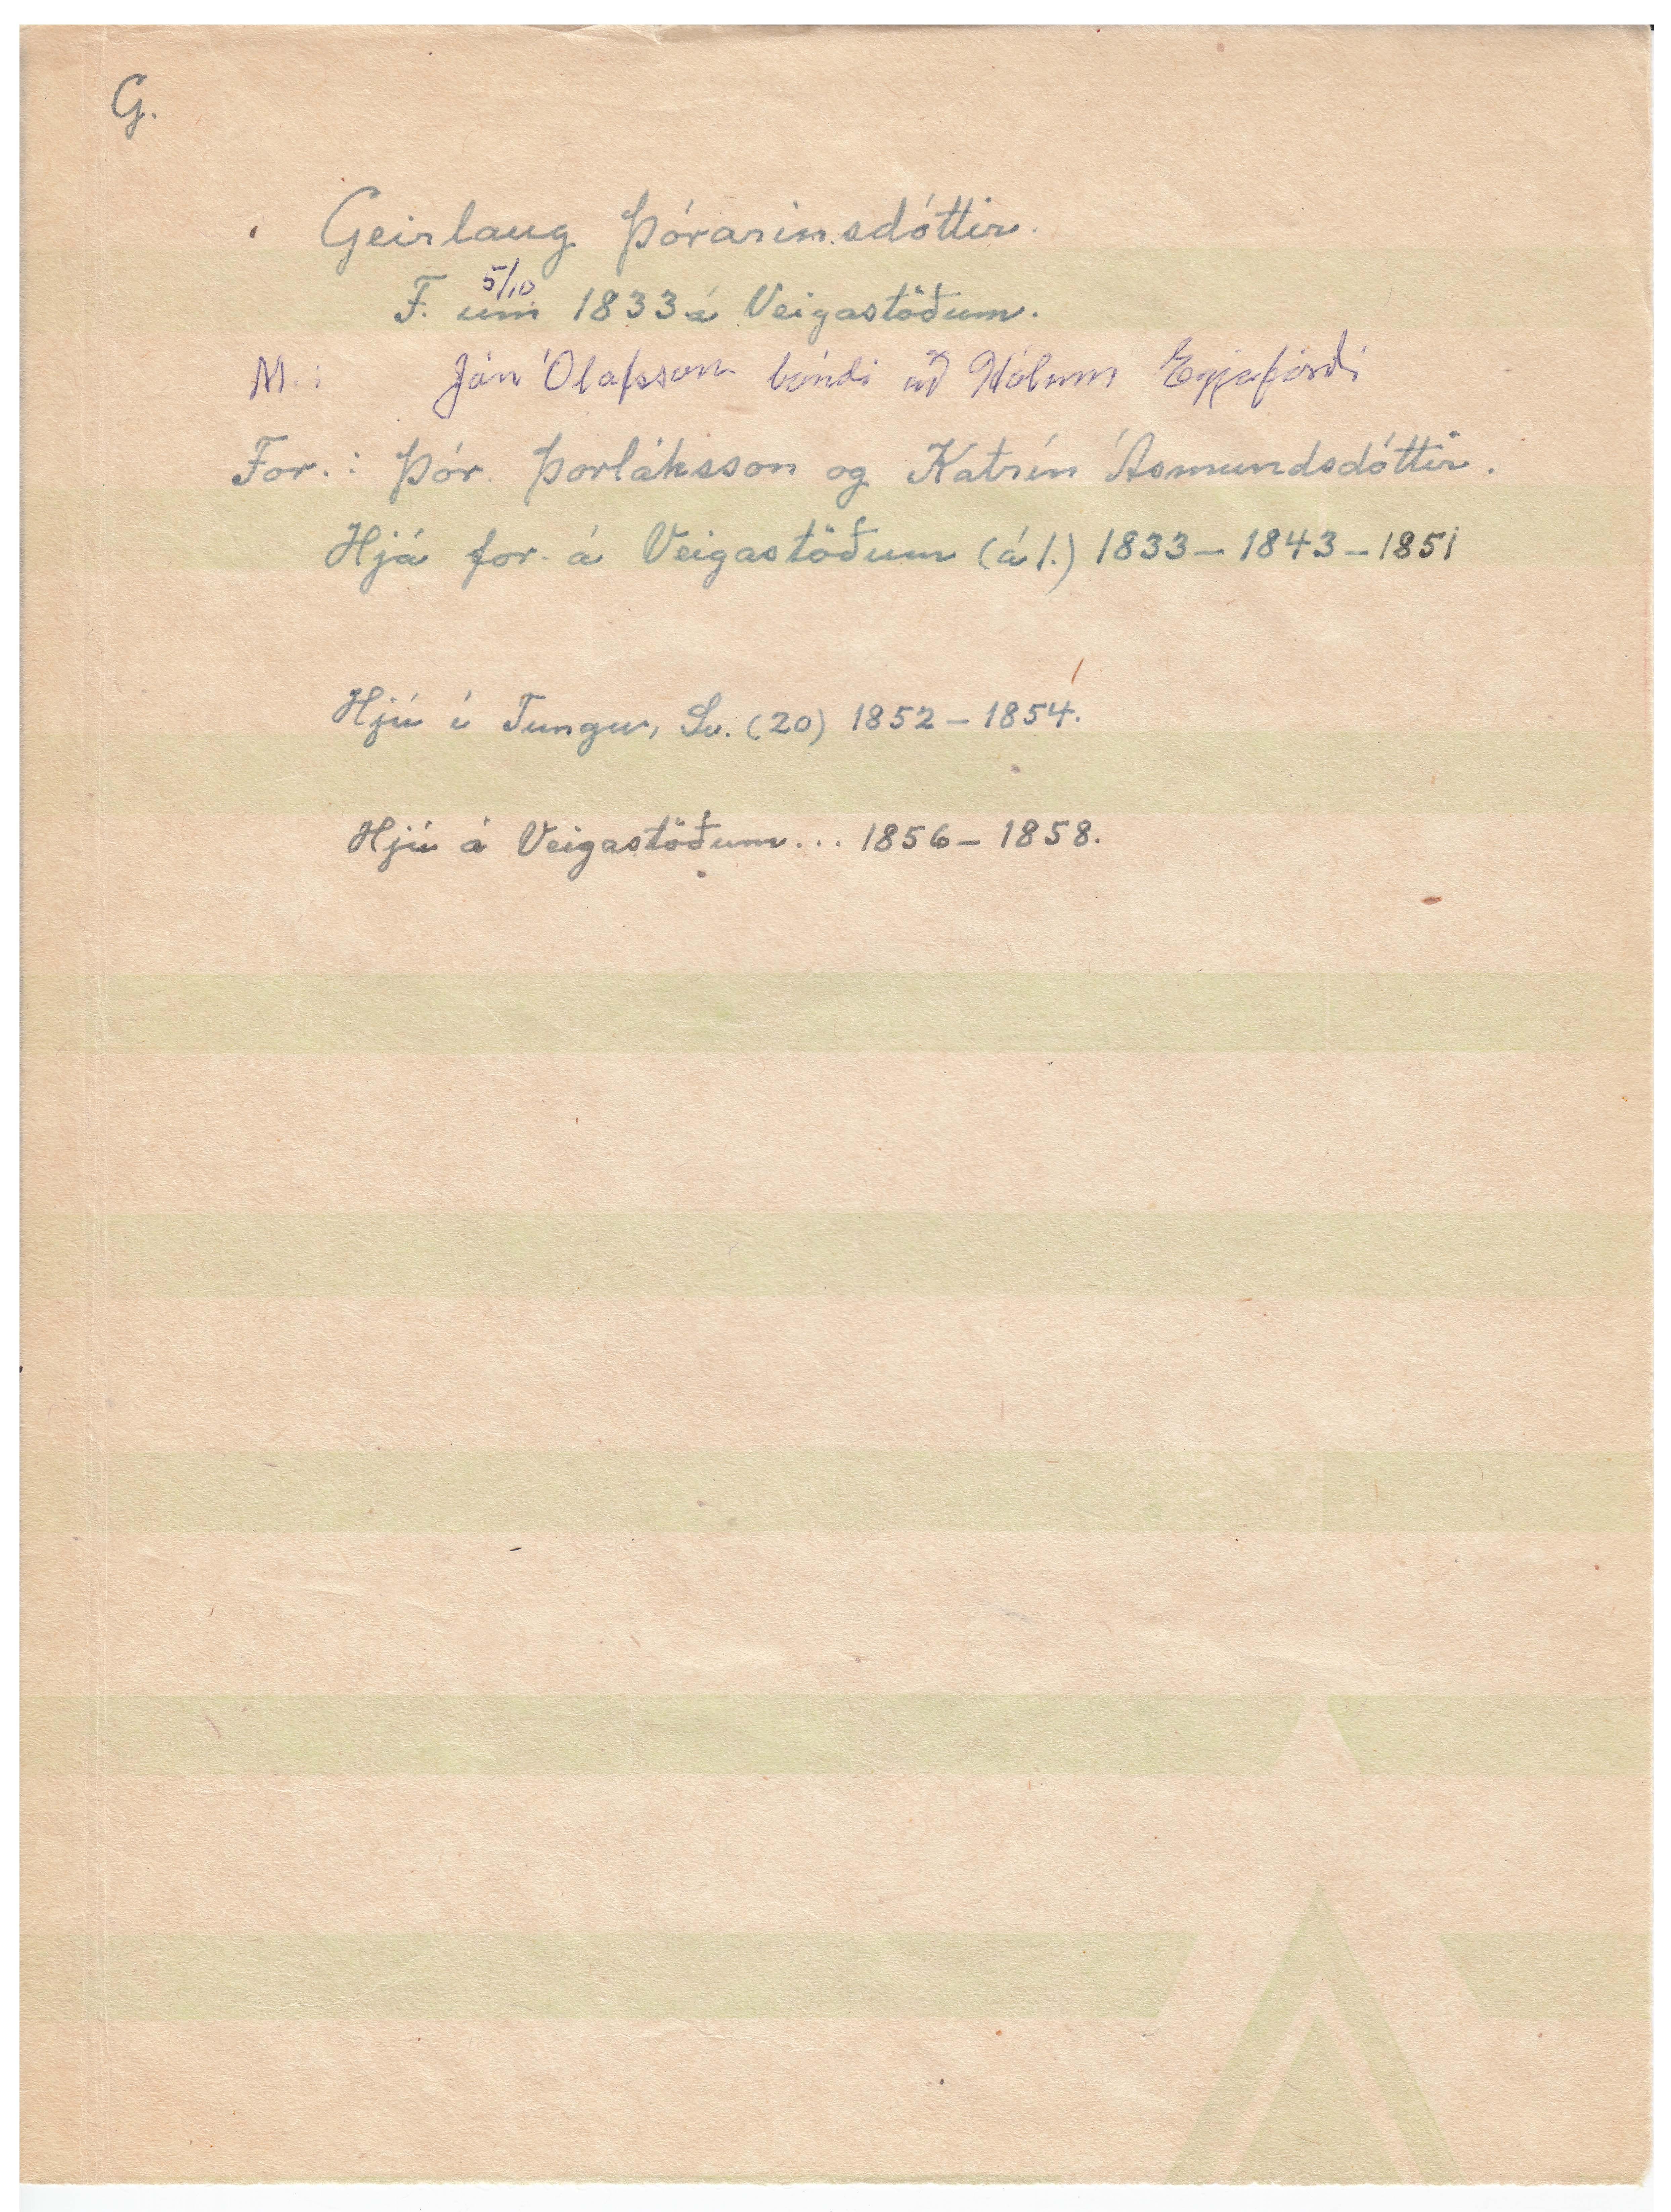 G.
Geirlaug Þórarinsdóttir.
5/10
F. um 1833 á Veigastöðum.
M.: Jón Ólafsson bóndi að Hólum Eyjafirði
For.: Þór. Þorláksson og Katrín Ásmundsdóttir.
Hjá for. á Veigastöðum (á 1.) 1833 – 1843 – 1851
Hjú í Tungu, Sv. (20) 1852 – 1854.
Hjú á Veigastöðum... 1856 – 1858.